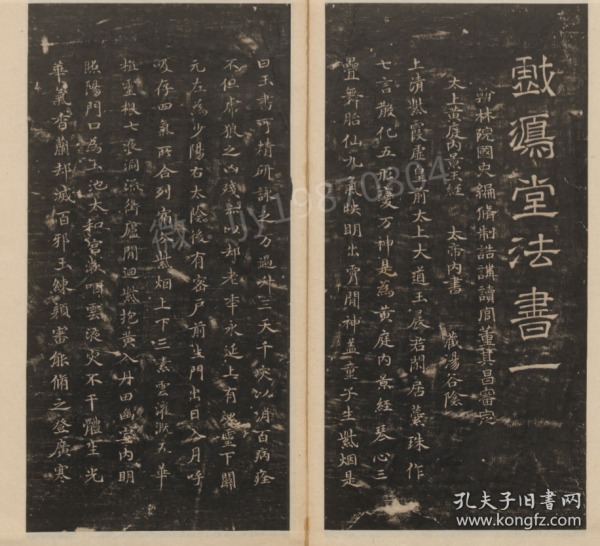 戲鴻堂法書一
翰林院國史編脩制誥講讀官董其昌審定
太上黃庭內景玉經 太帝內書 藏暘谷陰
上清紫霞虛皇前太上大道玉晨君閒居蘂珠作
七言散化五形變万神是為黃庭內景經琴心三
疊舞胎仙九氣暎明出霄間神蓋童子生紫烟是
曰玉書可精研詠之万過升三天千灾以消百病痊
不但虎狼之凶殘亦以却老年永延上有魂靈下關
元左為少陽右太陰後有密戶前生門出日入月呼
吸存四氣所合列宿分紫烟上下三素雲灌溉五華
植靈根七液洞流衝廬間迴紫抱黃入丹田幽室內明
照陽門口為玉池太和宮漱咽靈液灾不干體生光
華氣香蘭却滅百邪玉練顏審能脩之登廣寒
微 JY19870804
孔夫子旧书网
www.kongfz.com